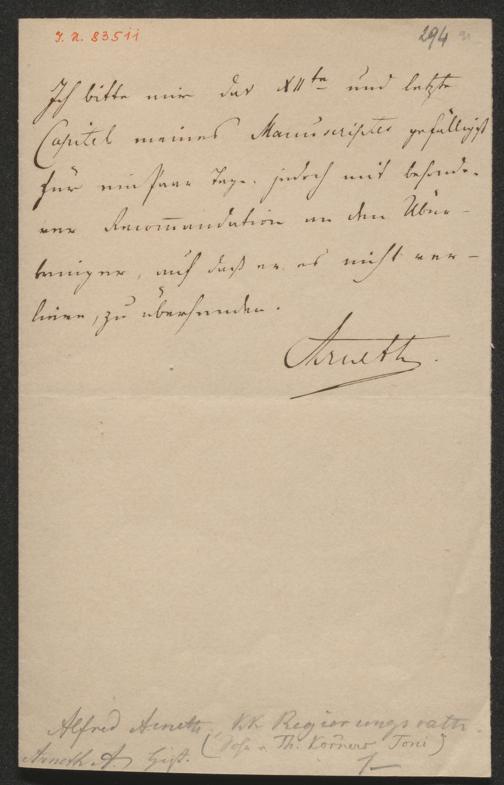 J. N. 83511
294
Ich bitte mir das XII te und letzte
Capitel meines Manuscriptes gefälligst
für ein Paar Tage, jedoch mit besonde-
rer Recom̄andation an den Über-
bringer, auf daß er es nicht ver-
liere, zu übersenden.
Arneth.
Alfred Arneth, KK Regierungsrath.
(Sohn v. Th. Körners Toni)
Arneth A. Hist.